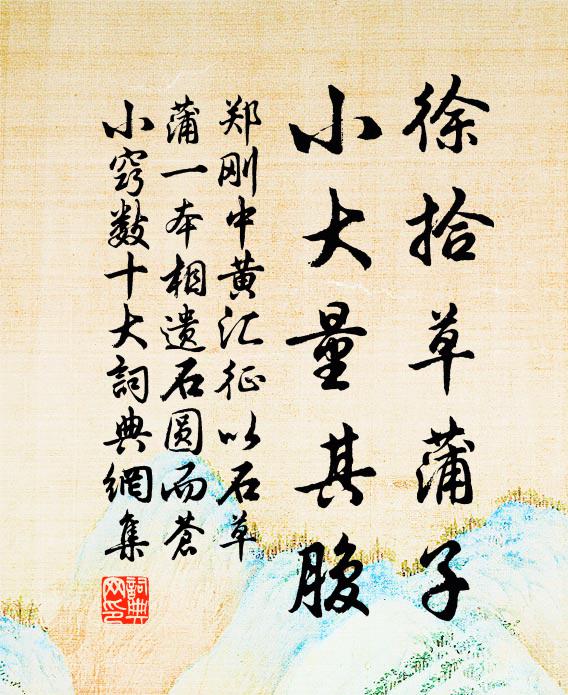 徐拾草蒲子
小大量其腹
郑刚中黄汇征以石草
蒲一本相遗石圆而苍
小窍数十大詞典網集
詞典
网印